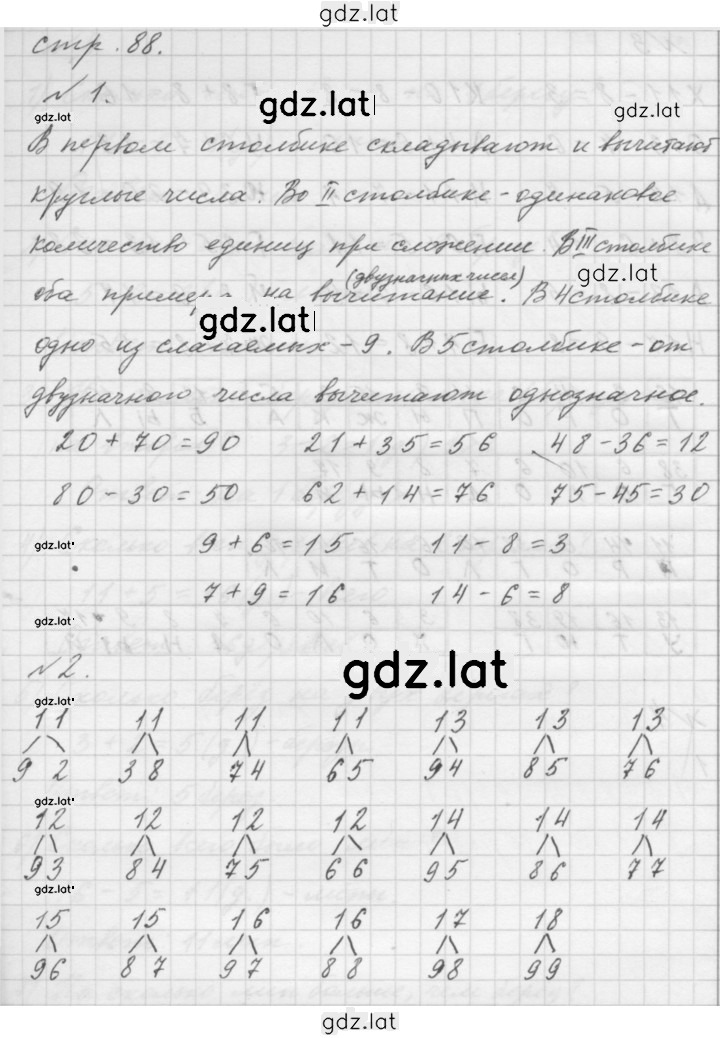 gdz.lat
стр. 88.
№ 1.
gdz.lat
gdz.lat
gdz.lat
В первом столбике складывают и вычитают
круглые числа. Во II столбике - одинаковое
количество единиц при сложении. В III столбике
gdz.lat
(двузначных чисел)
оба примера на вычитание. В 4 столбике
gdz.lat
одно из слагаемых - 9. В 5 столбике - от
двузначного числа вычитают однозначное.
20 + 70 = 90 21 + 35 = 56 48 - 36 = 12
80 - 30 = 50 62 + 14 = 76 75 - 45 = 30
gdz.lat 9 + 6 = 15 11 - 8 = 3
7 + 9 = 16 14 - 6 = 8
gdz.lat
№ 2.
gdz.lat
gdz.lat
11 11 11 11 13 13 13
9 2 3 8 7 4 6 5 9 4 8 5 7 6
gdz.lat
12 12 12 12 14 14 14
9 3 8 4 7 5 6 6 9 5 8 6 7 7
gdz.lat
15 15 16 16 17 18
9 6 8 7 9 7 8 8 9 8 9 9
gdz.lat